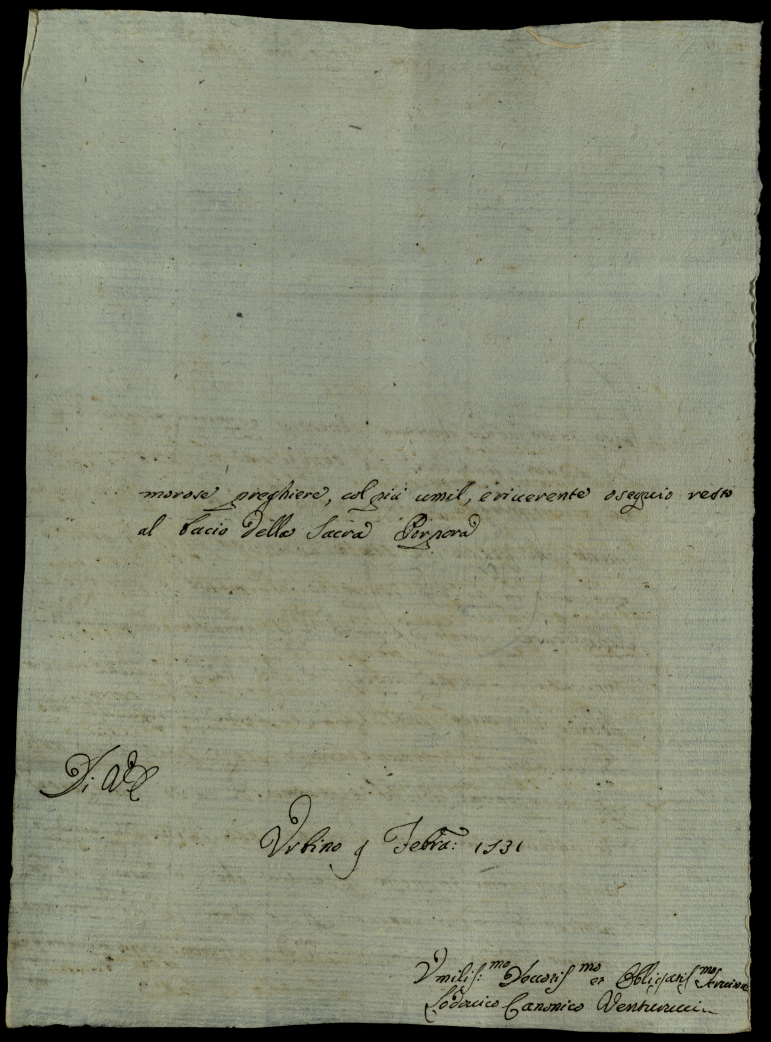 morose preghiere, col più umil, e riverente osequio resto
al bacio della Sacra Porpora
Di VE
Urbino 9 Febrã: 1731
Umilis:mo Devotis mo et Obligatis mo Servitore
Lodovico Canonico Venturucci